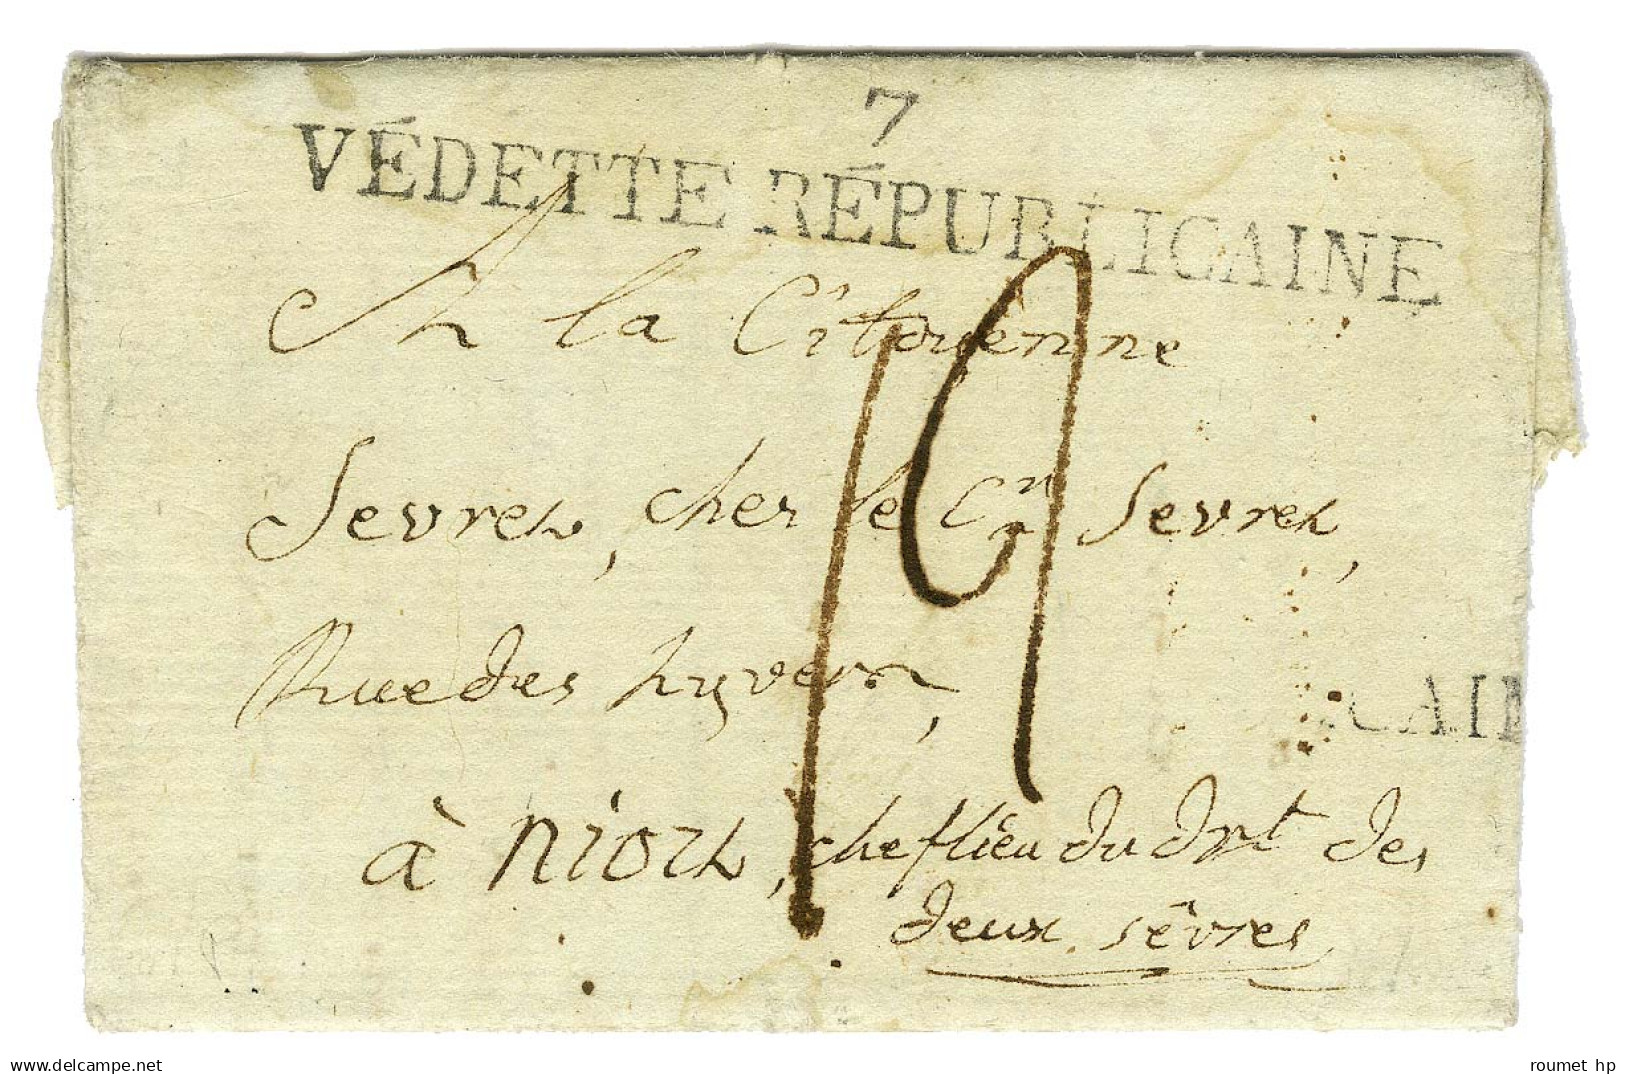 7
VÉDETTE RÉPUBLICAINE
A la Citoyenne
Sevres, chez le C.n Sevres,
Rue des hyvers,
19
CAIN
à Niort, cheflieu du Dpt des
deux sèvres
delcampe.net
roumet hp